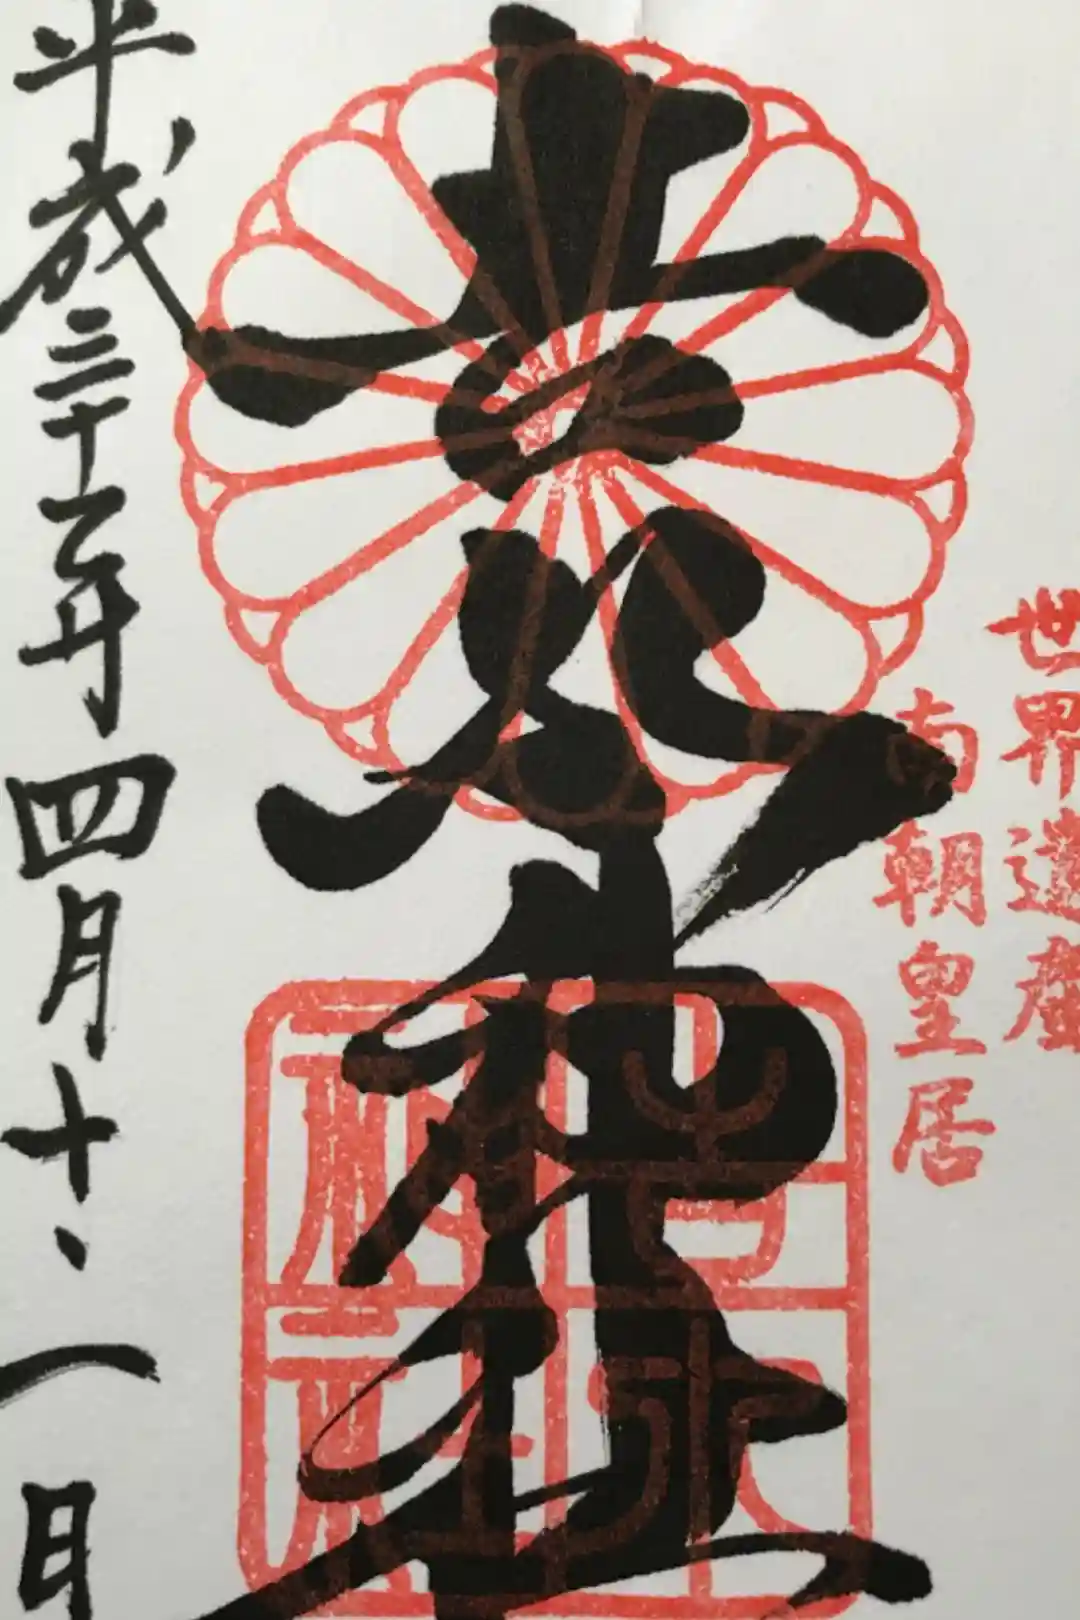 世界遺産
南朝皇居
吉水神社
吉水神社
平成三十一年四月十、一日